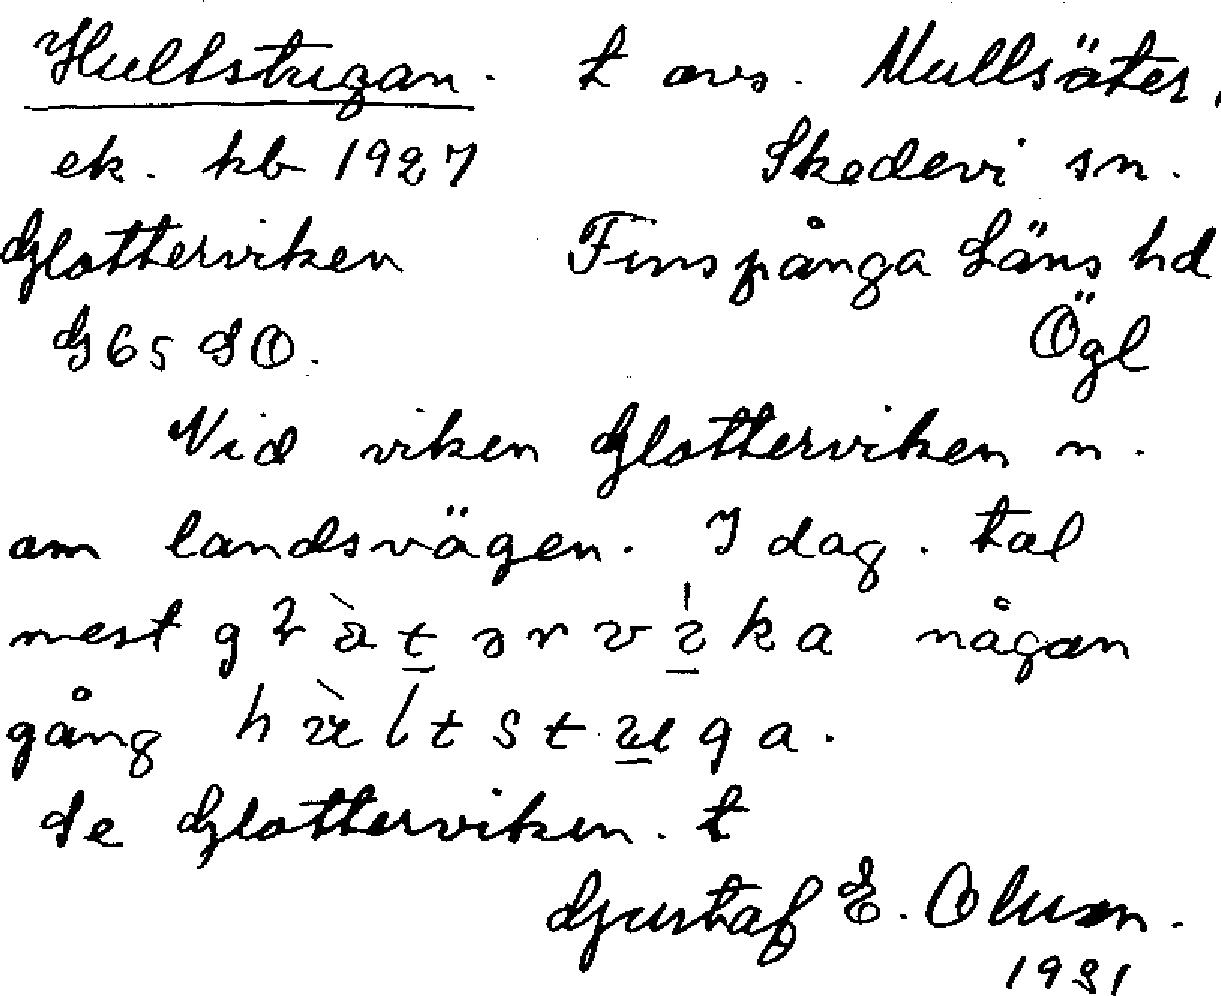 Hultstugan. t avs. Mullsäter,
ek. kb 1927 Skedevi sn.
Glotterviken Finspånga Läns hd
G65 SO. Ögl
Vid viken Glotterviken n.
om landsvägen. I dag. tal
mest någon
gång h l t s t u g a.
Se Glotterviken. t
Gustaf E. Olsson.
1931